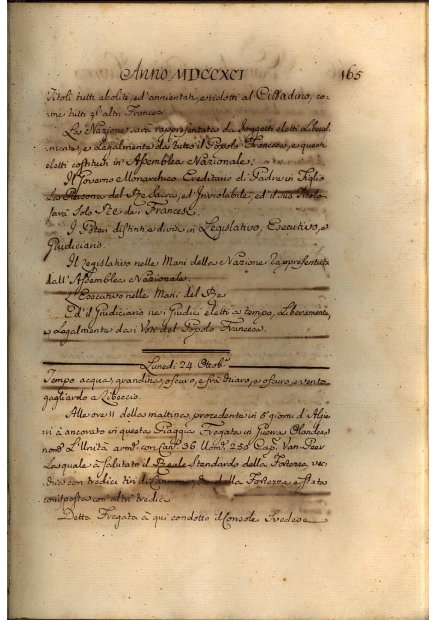 Anno MDCCXCI 165
Titoli tutti aboliti, ed annientati, e ridotti al Cittadino, co-
me tutti gl'altri Francesi.
La Nazione sarà rappresentata da Soggetti eletti Liberal-
mente, e Legalmente da tutto il Popolo Francese, e questi
eletti costituiti in Assemblea Nazionale.
Il Governo Monarchico Ereditario di Padre in Figlio
La Persona del Re Sacra, ed Inviolabile, ed il suo Titolo
sarà solo Re de Francesi.
I Poteri distinti, e divisi in Legislativo, Esecutivo, e
Giudiciario.
Il Legislativo nelle Mani della Nazione rappresentata
dall'Assemblea Nazionale.
L'Esecutivo nelle Mani del Re
Ed il Giudiciario nei Giudici eletti a tempo, Liberamente,
e Legalmente dai Voti del Popolo Francese.
Lunedì 24 Ottob.
Tempo acqua, grandine, oscuro, e frà chiaro, e oscuro, e vento
gagliardo a Libeccio.
Alle ore 11 della mattina, procedente in 8 giorni d'Alge-
ri à ancorato in questa Spiaggia Fregata in Guerra Olandese
nom. L'Unità arm. con Can. 36 Uom. 230 Cap. Van-
La quale à salutato il Reale Stendardo della Fortezza
con tredici tiri di Cannone, che dalla Fortezza è stata
corrisposta con altri tredici.
Detta Fregata à qui condotto il Console Svedese